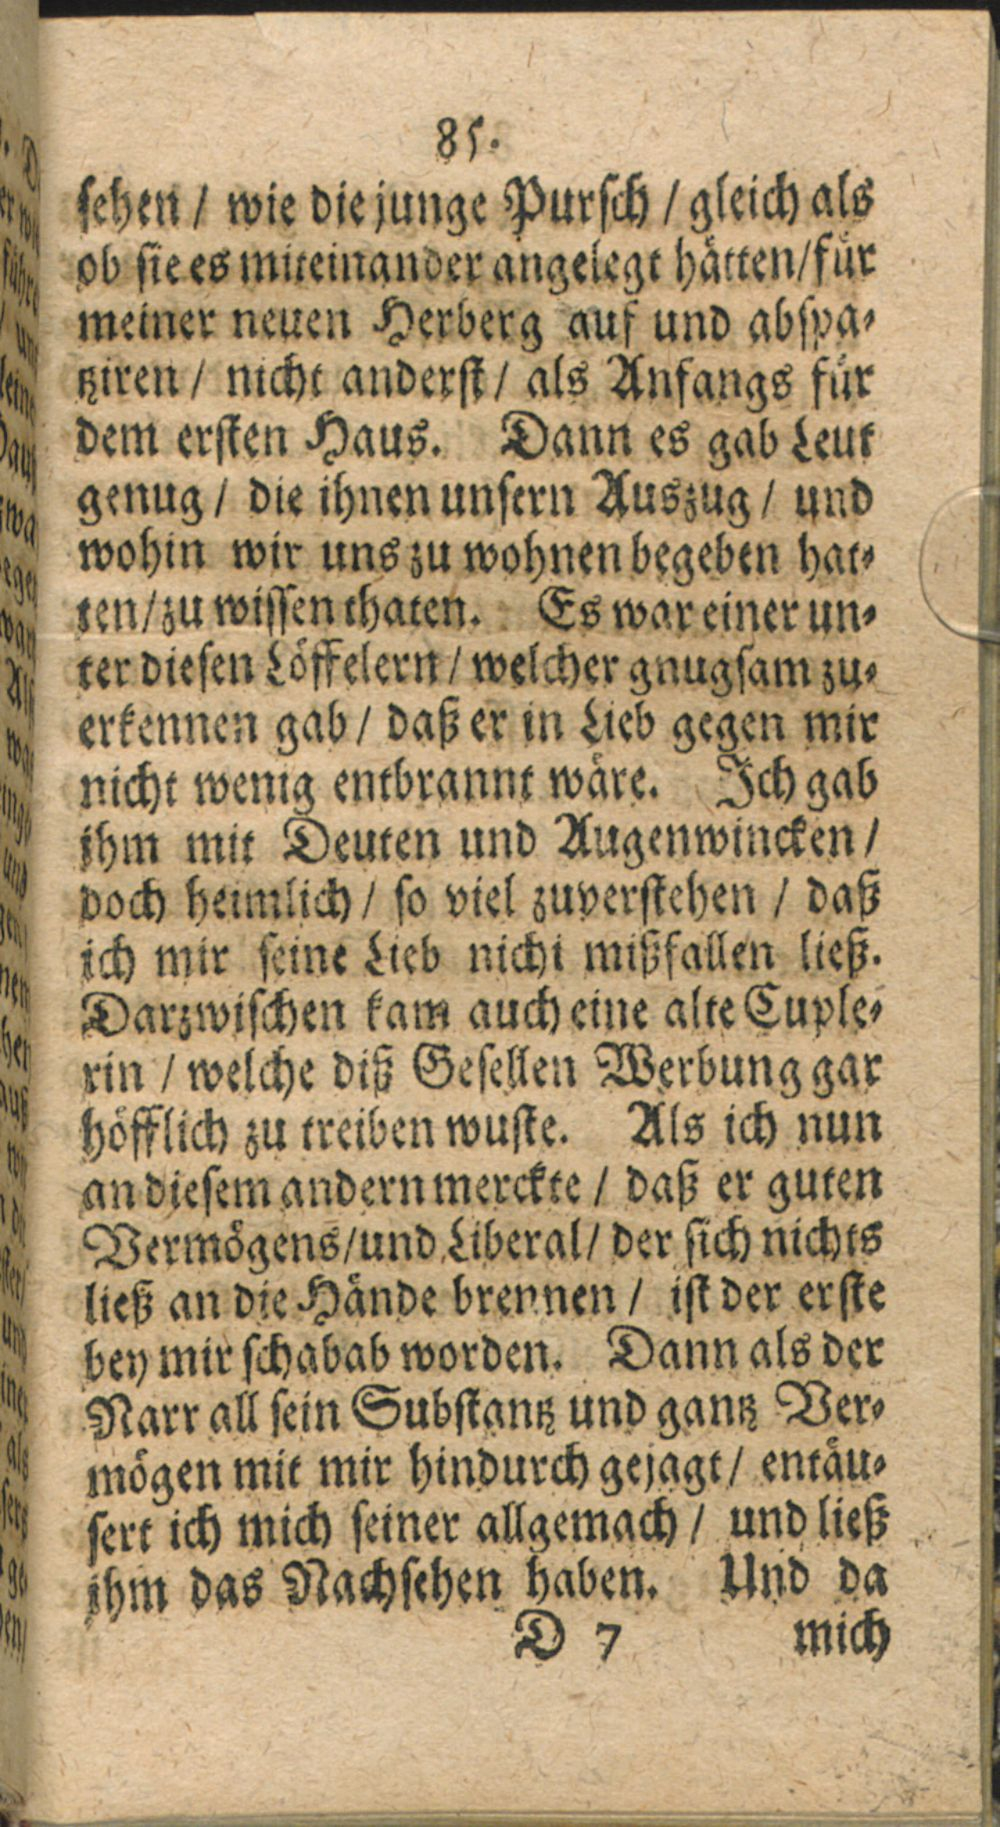 85.
sehen / wie die junge Pursch / gleich als
ob sie es miteinander angelegt hätten/für
meiner neuen Herberg auf und abspa-
tziren / nicht anderst / als Anfangs für
dem ersten Haus. Dann es gab Leut
genug / die ihnen unsern Auszug / und
wohin wir uns zu wohnen begeben hat-
ten/zu wissen thaten. Es war einer un-
ter diesen Löffelern / welcher gnugsam zu-
erkennen gab / daß er in Lieb gegen mir
nicht wenig entbrannt wäre. Ich gab
ihm mit Deuten und Augenwincken /
doch heimlich / so viel zuverstehen / daß
ich mir seine Lieb nichi mißfallen ließ.
Darzwischen kam auch eine alte Cuple-
rin / welche diß Gesellen Werbung gar
höfflich zu treiben wuste. Als ich nun
an diesem andern merckte / daß er guten
Vermögens/und Liberal/ der sich nichts
ließ an die Hände brennen / ist der erste
bey mir schabab worden. Dann als der
Narr all sein Substantz und gantz Ver-
mögen mit mir hindurch gejagt / entäu-
sert ich mich seiner allgemach / und ließ
ihm das Nachsehen haben. Und da
D 7 mich